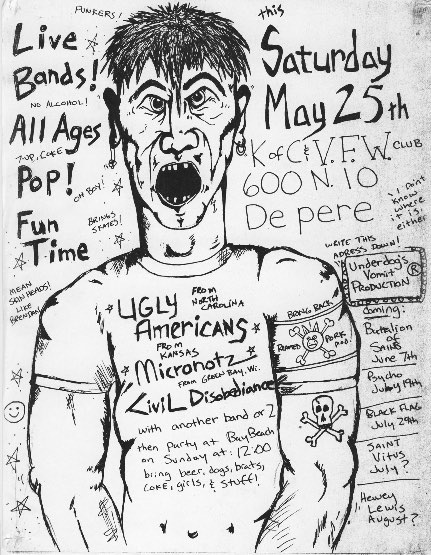 FUNKERS!
this
Live
Bands!
NO ALCOHOL!
All Ages
7-UP, COKE
Pop!
OH BOY!
Fun
Time
BRING SKATES!
MEAN
SKIN HEADS!
LIKE
BRENDAN!
Saturday
May 25th
K of C & V.F.W. CLUB
600 N. 10
De pere
I DONT
KNOW
where
it is,
either
WRITE THIS
ADRESS DOWN!
Underdogs
Vomit
PRODUCTION ®
Coming:
Battalion
of
SAINTS
June 7th
Psycho
July 19th
BLACK FLAG
July 29th
SAINT
Vitus
July?
Hewey
Lewis
August?
UGLY
AMERICANS
FROM
NORTH
CAROLINA
FROM
KANSAS
Micronotz
FROM GREEN BAY, Wi.
CiviL Disobediance
with another band or 2
then party at Bay Beach
on Sunday at: 12:00
bring beer, dogs, brats,
COKE, girls, & stuff!
BRING BACK
PORK